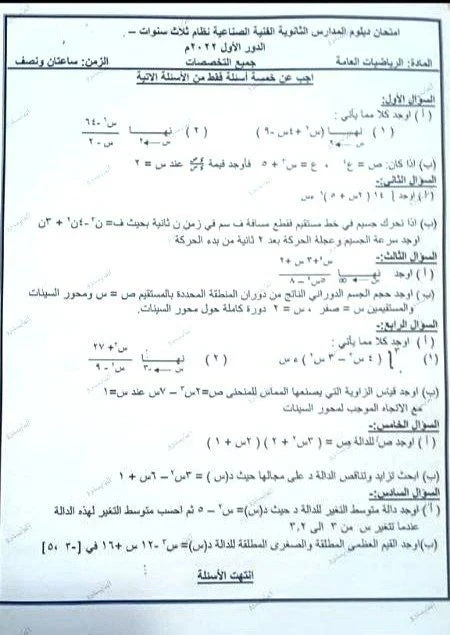 امتحان دبلوم المدارس الثانوية الفنية الصناعية نظام ثلاث سنوات –
الدور الأول ٢٠٢٢م
المادة: الرياضيات العامة جميع التخصصات الزمن: ساعتان ونصف
اجب عن خمسة أسئلة فقط من الأسئلة الآتية
السؤال الأول:
( أ ) اوجد كلا مما يأتي :
( ١ ) نهـــا س←٢ (س٢ + ٤س - ٩) ( ٢ ) نهـــا س←٢
(ب) اذا كان: ص = ع٤ ، ع = س٢ + ٥ فأوجد قيمة ءص/ءس عند س = ٢
السؤال الثاني:-
(أ) اوجد ∫ ١٤ ( ٢س + ٥ )٦ ءس
(ب) اذا تحرك جسيم في خط مستقيم فقطع مسافة ف سم في زمن ن ثانية بحيث ف= ن٣ -٤ن٢ + ٣ن
اوجد سرعة الجسيم وعجلة الحركة بعد ٢ ثانية من بدء الحركة
السؤال الثالث:-
( أ ) اوجد نهـــا س←∞ س٢+٣س+٢ / ٥س٢ – ٨
(ب) اوجد حجم الجسم الدوراني الناتج من دوران المنطقة المحددة بالمستقيم ص = س ومحور السينات
والمستقيمين س = صفر ، س = ٢ دورة كاملة حول محور السينات.
السؤال الرابع:-
( أ ) اوجد كلا مما يأتي :
(١) ( ٤س – ٣س٢ ) ءس ( ٢ ) نهـــا س←-٣ س٣ + ٢٧ / س٢ – ٩
(ب) اوجد قياس الزاوية التي يصنعها المماس للمنحنى ص=٢س٣ – ٧س عند س=١
مع الاتجاه الموجب لمحور السينات
السؤال الخامس:-
( أ ) اوجد صَ للدالة ص = ( ٣س٢ + ٢ ) ( ٢س + ١ )
(ب) ابحث تزايد وتناقص الدالة د على مجالها حيث د(س) = ٣س٢ – ٦س + ١
السؤال السادس:-
( أ ) اوجد دالة متوسط التغير للدالة د حيث د(س)= س٢ – ٥ ثم احسب متوسط التغير لهذه الدالة
عندما تتغير س من ٣ الى ٣,٢
(ب) اوجد القيم العظمى المطلقة والصغرى المطلقة للدالة د(س)= س٣ -١٢ س +١٦ في [-٣ ،٥]
انتهت الأسئلة